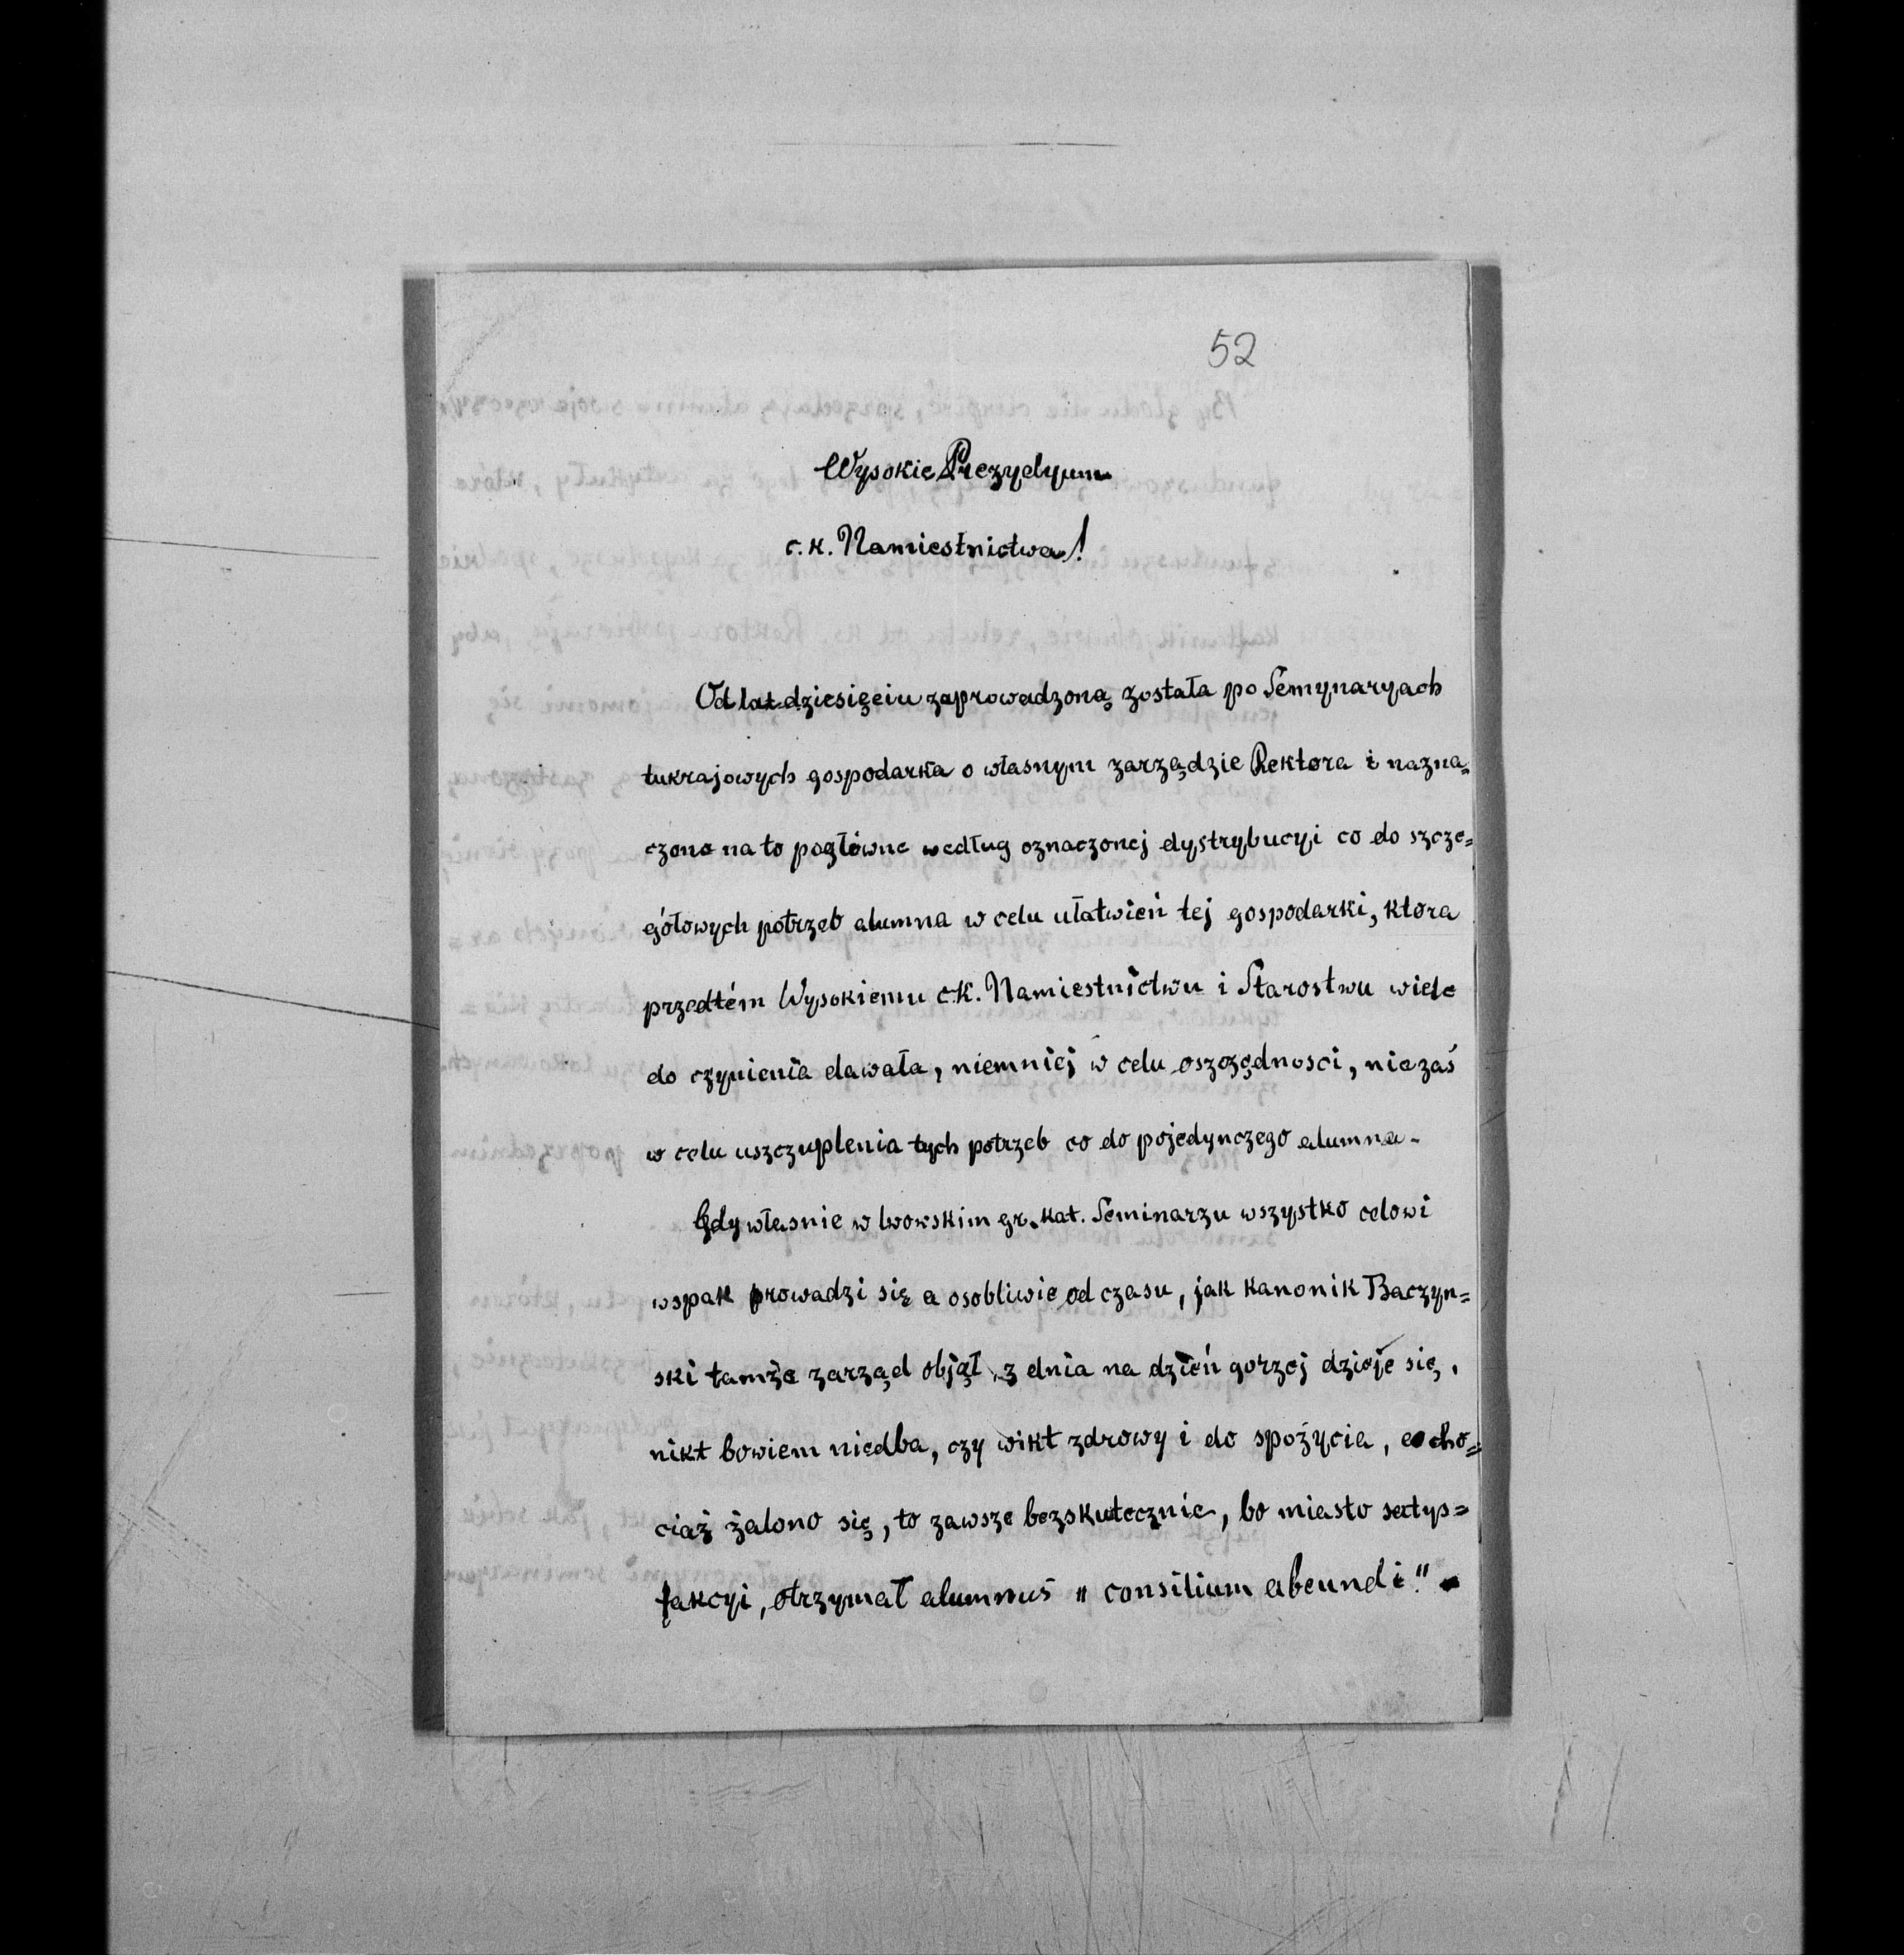 52
Wysokie Prezydyum
c. k. Namiestnictwa!
Od lat dziesięciu zaprowadzoną została po Semynaryach
tukrajowych gospodarka o własnym zarządzie Rektora i nazna=
czono na to pogłówne według oznaczonej dystrybucyi co do szcze=
gółowych potrzeb alumna w celu ułatwień tej gospodarki, ktora
przedtém Wysokiemu c.k. Namiestnictwu i Starostwu wiele
do czynienia dawała, niemniej w celu oszczędnosci, nie zaś
w celu uszczuplenia tych potrzeb co do pojedynczego alumna.
Gdy własnie w lwowskim gr. kat. Seminarzu wszystko celowi
wspak prowadzi się a osobliwie od czasu, jak kanonik Baczyn=
ski tamże zarząd objął, z dnia na dzień gorzej dzieje się,
nikt bowiem niedba, czy wikt zdrowy i do spożycia, a cho=
ciaż żalono się, to zawsze bezskutecznie, bo miasto satys=
fakcyi, otrzymał alumnus „consilium abeundi."